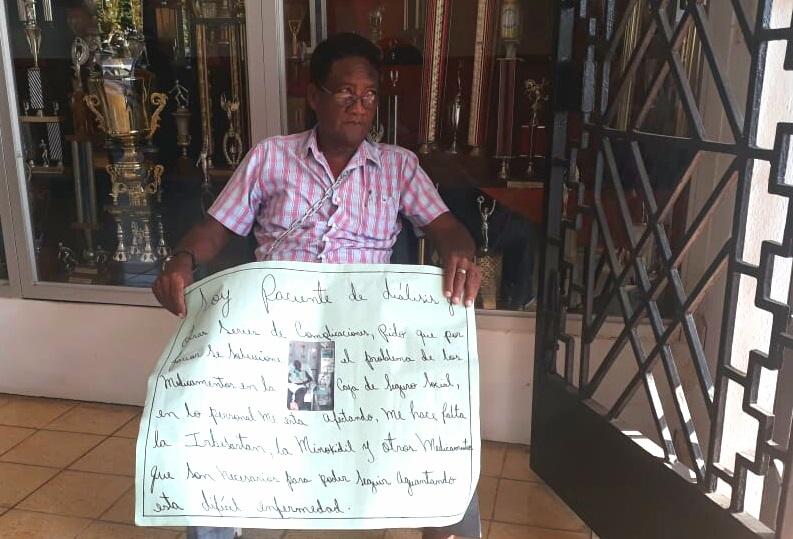 Soy Paciente de diálisis y
otras series de Complicaciones, Pido que por
favor se solucione el problema de los
Medicamentos en la Caja de Seguro Social,
en lo personal me esta afectando, me hace falta
la Irbesartan, la Minoxidil y otros Medicamentos
que son necesarios para poder seguir aguantando
esta difícil enfermedad.